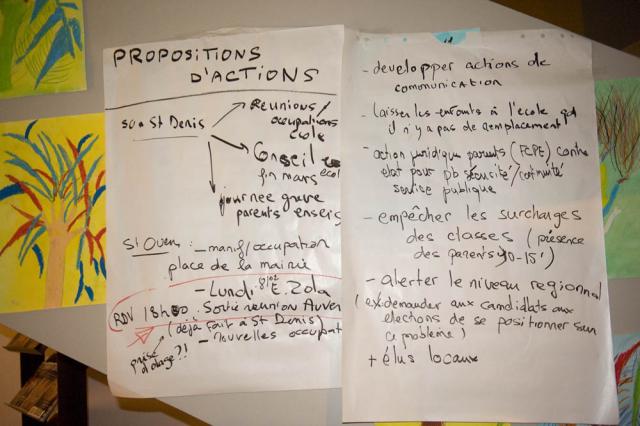 PROPOSITIONS
D'ACTIONS
St Denis
Réunions/
occupations
école
Conseil
école
fin mars
journée grève
parents enseig
St Ouen: - manif/occupation
place de la mairie
- Lundi 8/02 E. Zola
RDV 18h00 : Sortie réunion Auver
(déjà fait à St Denis)
- nouvelles occupat
prise
d'otage?!
- developper actions de
communication
- laisser les enfants à l'école qd
il n'y a pas de remplacement
- action juridique parents (FCPE) contre
etat pour pb sécurité/continuité
service publique
- empêcher les surcharges
des classes (présence
des parents 10-15')
- alerter le niveau regionnal
(ex: demander aux candidats aux
elections de se positionner sur
ce problème)
+ élus locaux